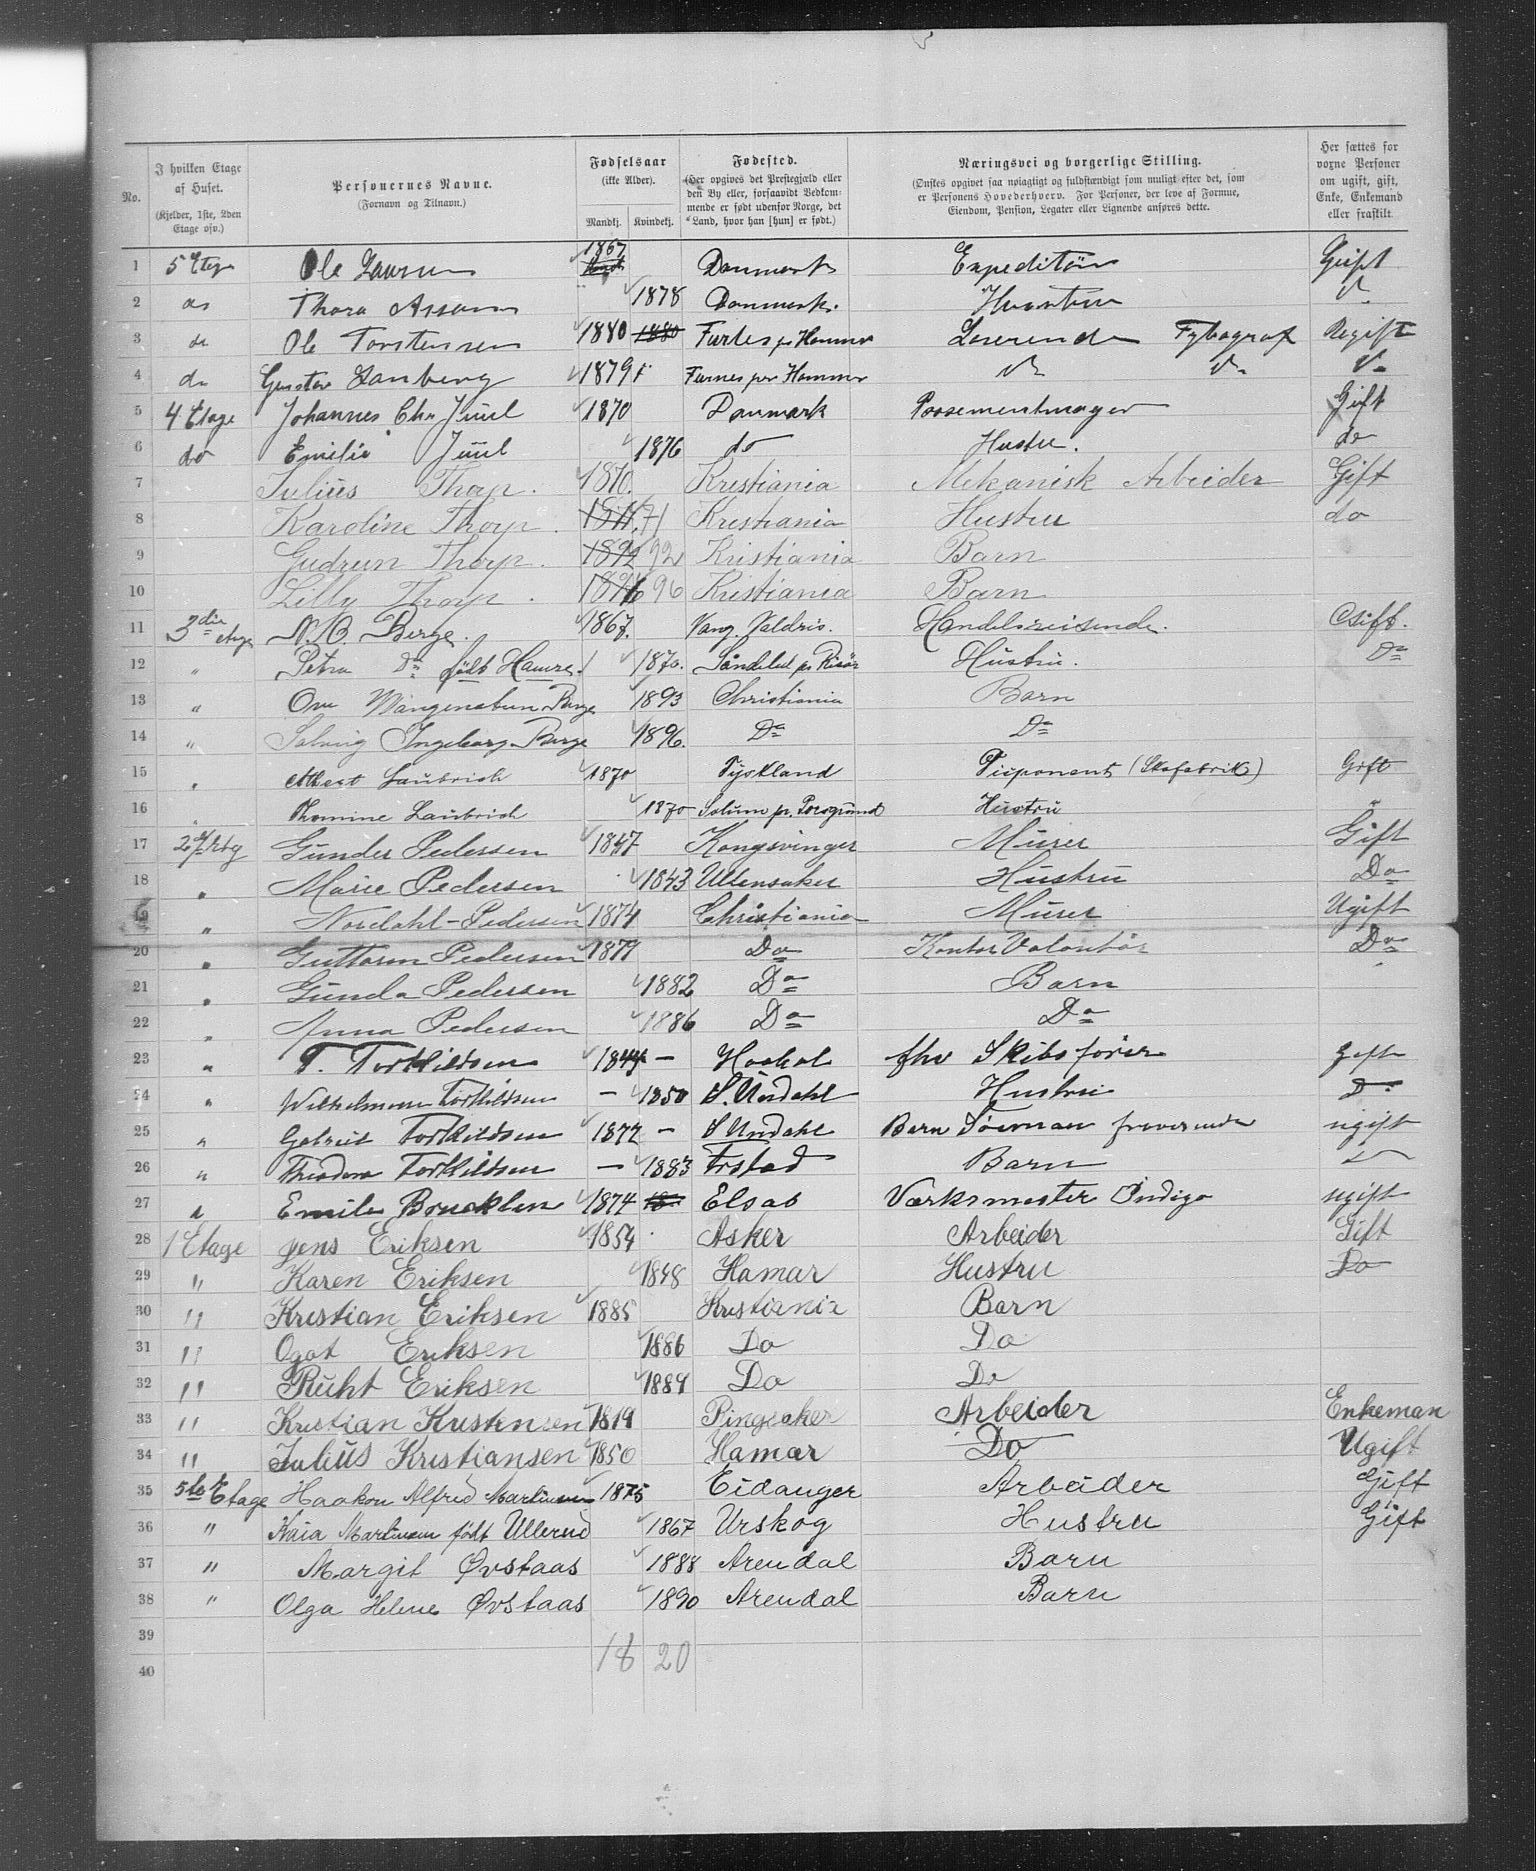 No.
I hvilken Etage af Huset. (Kjelder, 1ste, 2den Etage osv.)
Personernes Navne. (Fornavn og Tilnavn.)
Fødselsaar (ikke Alder). Mandkj. Kvindekj.
Fødested. (Her opgives det Prestegjæld eller den By eller, forsaavidt Vedkommende er født udenfor Norge, det Land, hvor han [hun] er født.)
Næringsvei og borgerlige Stilling. (Ønskes opgivet saa nøiagtigt og fuldstændigt som muligt efter det, som er Personens Hovederhverv. For Personer, der leve af Formue, Eiendom, Pension, Legater eller Lignende anføres dette.)
Her sættes for voxne Personer om ugift, gift, Enke, Enkemand eller fraskilt.
1 5 Etage Ole 1867 Danmark Expeditør Gift
2 do Thora 1878 Danmark. Hustru do
3 do Ole Torstensen 1880 1880 pr Hammer Typograf Ugift
4 do Gustav Lanberg 1879 Furnes per Hammer do do do
5 4 Etage Johannes Chr Juul 1870 Danmark Possementmager Gift
6 do Emilie Juul 1876 do Hustru. do
7 Julius Thorp. 1870. Krestiania Mekanisk Arbeider Gift
8 Karoline Thorp. 71 Krestiania Hustru do
9 Gudrun Thorp. 1892 92 Kristiania Barn
10 Lilly Thorp. 1896 96 Kristiania Barn
11 3die Etage N. O. Berge. 1867. Vang. Valdris. Handelsreisende. Gift.
12 " Petra Do født Hamre. 1870. Søndeled pr Risør Hustru. Do
13 " Berge 1893 Christiania Barn
14 " Solveig Ingeborg Berge 1896. Do Do
15 " Albert Laubrich 1870 Tyskland Disponent (Skofabrik) Gift
16 " Thomine Laubrich 1870 Solum pr. Porsgrund Hustru "
17 2 Etg Gunder Pedersen 1847 Kongsvinger Murer Gift
18 " Marie Pedersen 1843 Ullensaker Hustru Do
19 " Nordahl-Pedersen 1874 Christiania Murer Ugift
20 " Guttorm Pedersen 1879 Do Kontor Volontør Do
21 " Gunda Pedersen 1882 Do Barn
22 " Anna Pedersen 1886 Do Do
23 " T. Torkildsen 1844 — fhv Skibsfører gift
24 " Wilhelmine Torkildsen — 1850 S. Undahl Hustru Do
25 " Gabriel Torkildsen 1877 — S Undahl Barn Søman fraværende ugift
26 " Theodora Torkildsen — 1883 Barn
27 " Emile Brucklen 1874 Elsas Værksmester Indigo ugift
28 1 Etage Jens Eriksen 1854 Asker Arbeider Gift
29 " Karen Eriksen 1848 Hamar Hustru Do
30 " Kristian Eriksen 1885 Kristiania Barn
31 " Ogot Eriksen 1886 Do Do
32 " Ruht Eriksen 1889 Do Do
33 " Kristian Kristensen 1819 Ringsaker Arbeider Enkeman
34 " Julius Kristiansen 1850 Hamar Do Ugift
35 5te Etage Haakon Alfred Martinsen 1875 Eidanger Arbeider Gift
36 " Kaia Martinsen født Ullerud 1867 Urskog Hustru Gift
37 " Margit Øvstaas 1888 Arendal Barn
38 " Olga Helene Øvstaas 1890 Arendal Barn
39
40 18 20